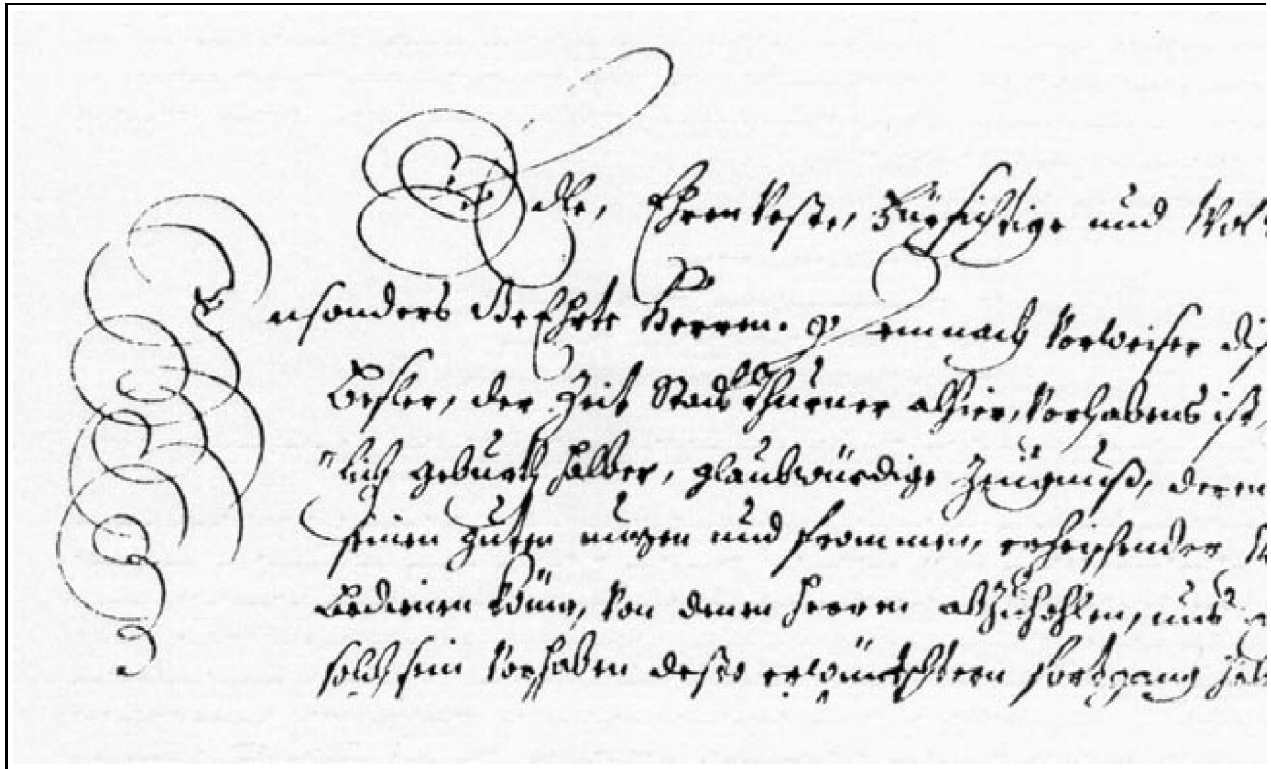 Edle, Ehrenveste, Fürsichtige und Wol
Insonders Geehrte Herren. Demnach Vorweiser di
Besler, der Zeit Stadtthurner alhier, Vorhabens ist,
lich geburth halber, glaubwürdige Zeugnuß, deren
seinen guten nutzen und frommen, erheischender
bedienen könne, von denen Herren abzuhohlen, und
solch sein Vorhaben desto erwüntschtern fortgang hab